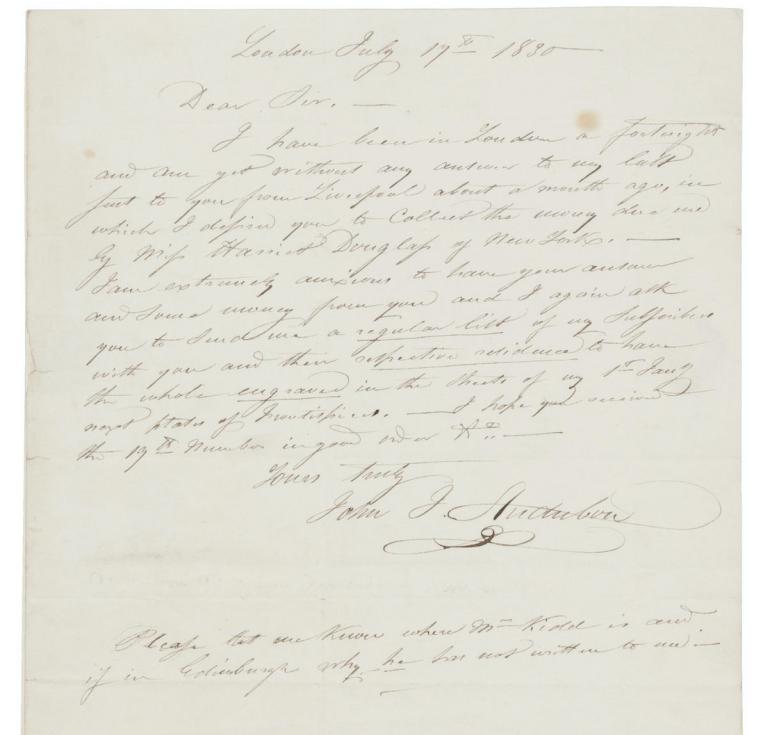 London July 17th 1830
Dear Sir. —
I have been in London a fortnight
and am yet without any answer to my last
sent to you from Liverpool about a month ago, in
which I desired you to Collect the money due me
by Miss Harriet Douglass of New York. —
I am extremely anxious to have your answer
and some money from you and I again ask
you to Send me a regular list of my Subscribers
with you and their respective residence to have
the whole engraved in the sheets of my 1st Jany
next plates of frontispiece. — I hope you received
the 19th Number in good order &c. —
Yours truly
John J. Audubon
Please let me Know where Mr Kidd is and
if in Edinburgh why he has not written to me. —